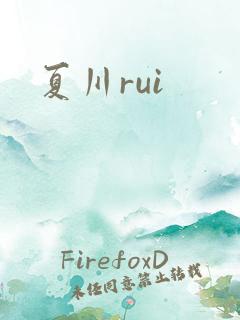 夏川rui
FirefoxD
未经同意禁止转载